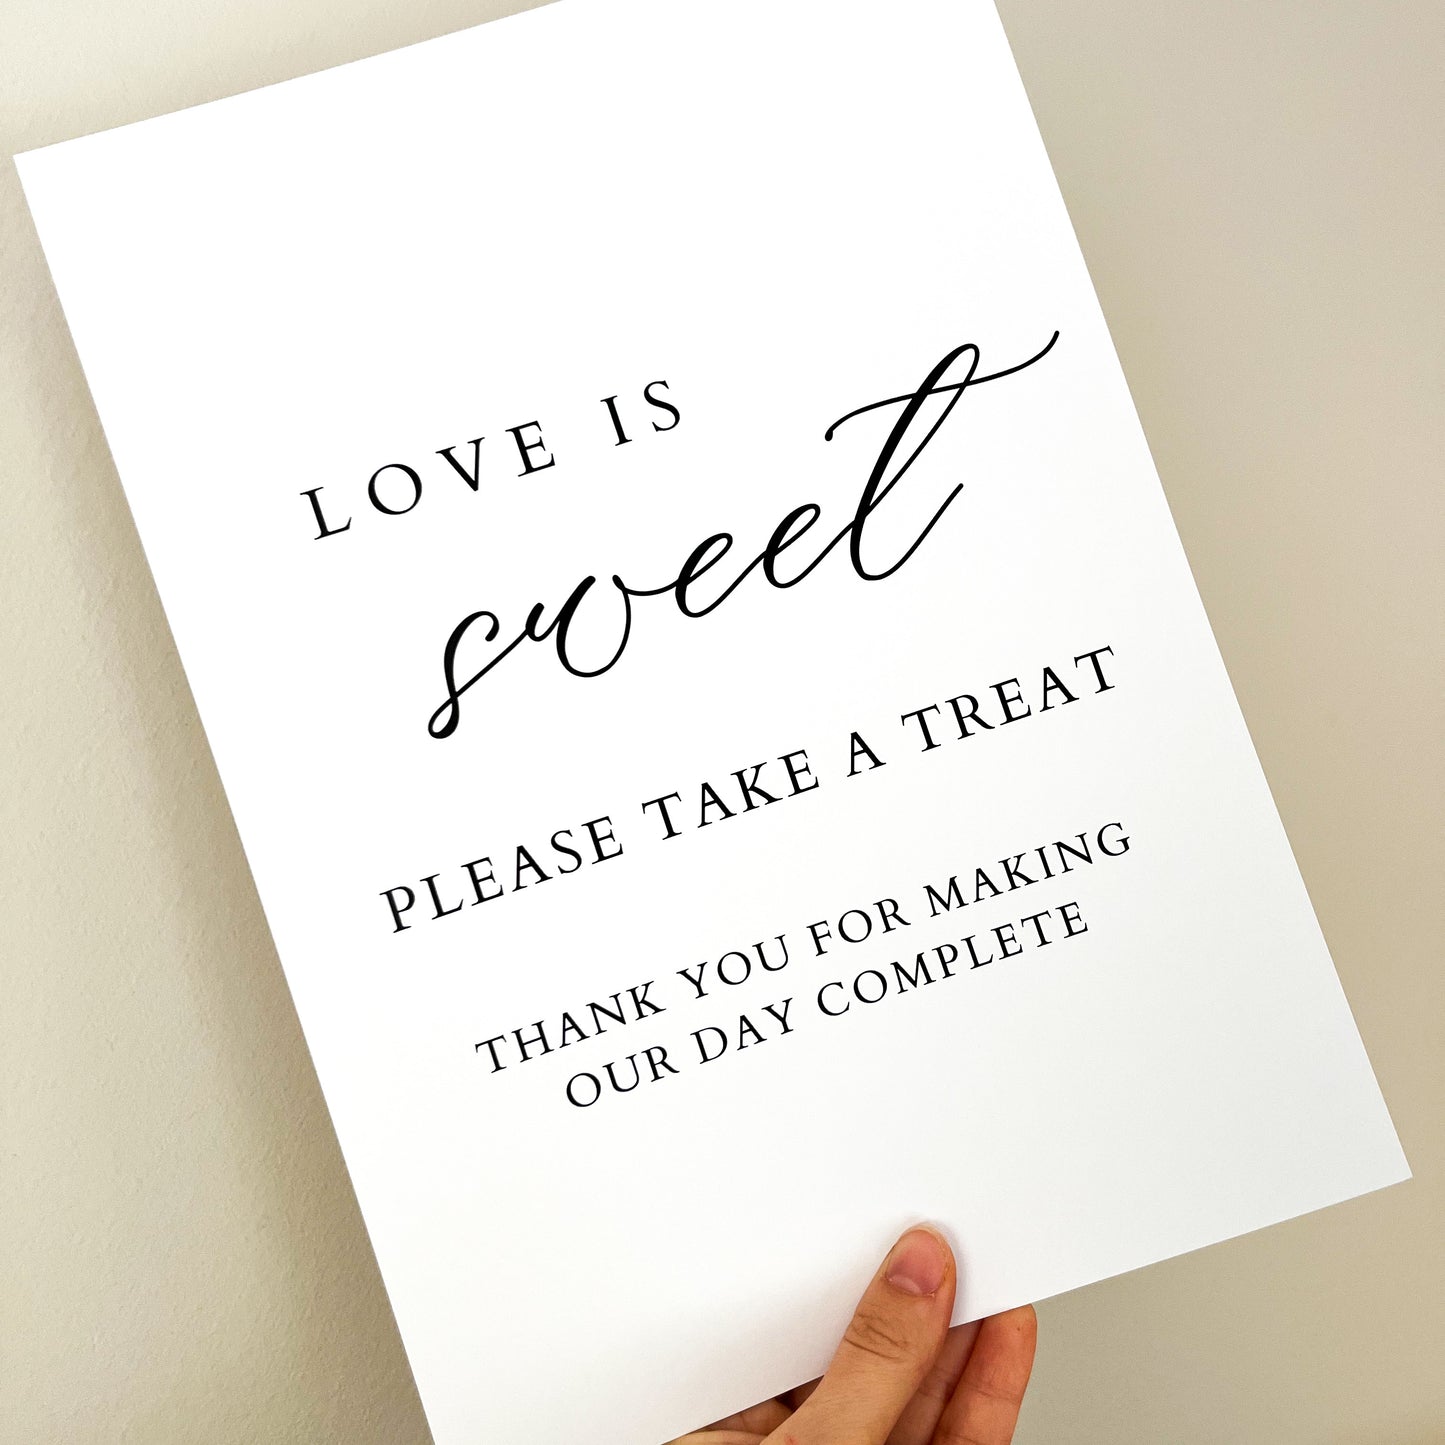 LOVE IS
sweet
PLEASE TAKE A TREAT
THANK YOU FOR MAKING
OUR DAY COMPLETE